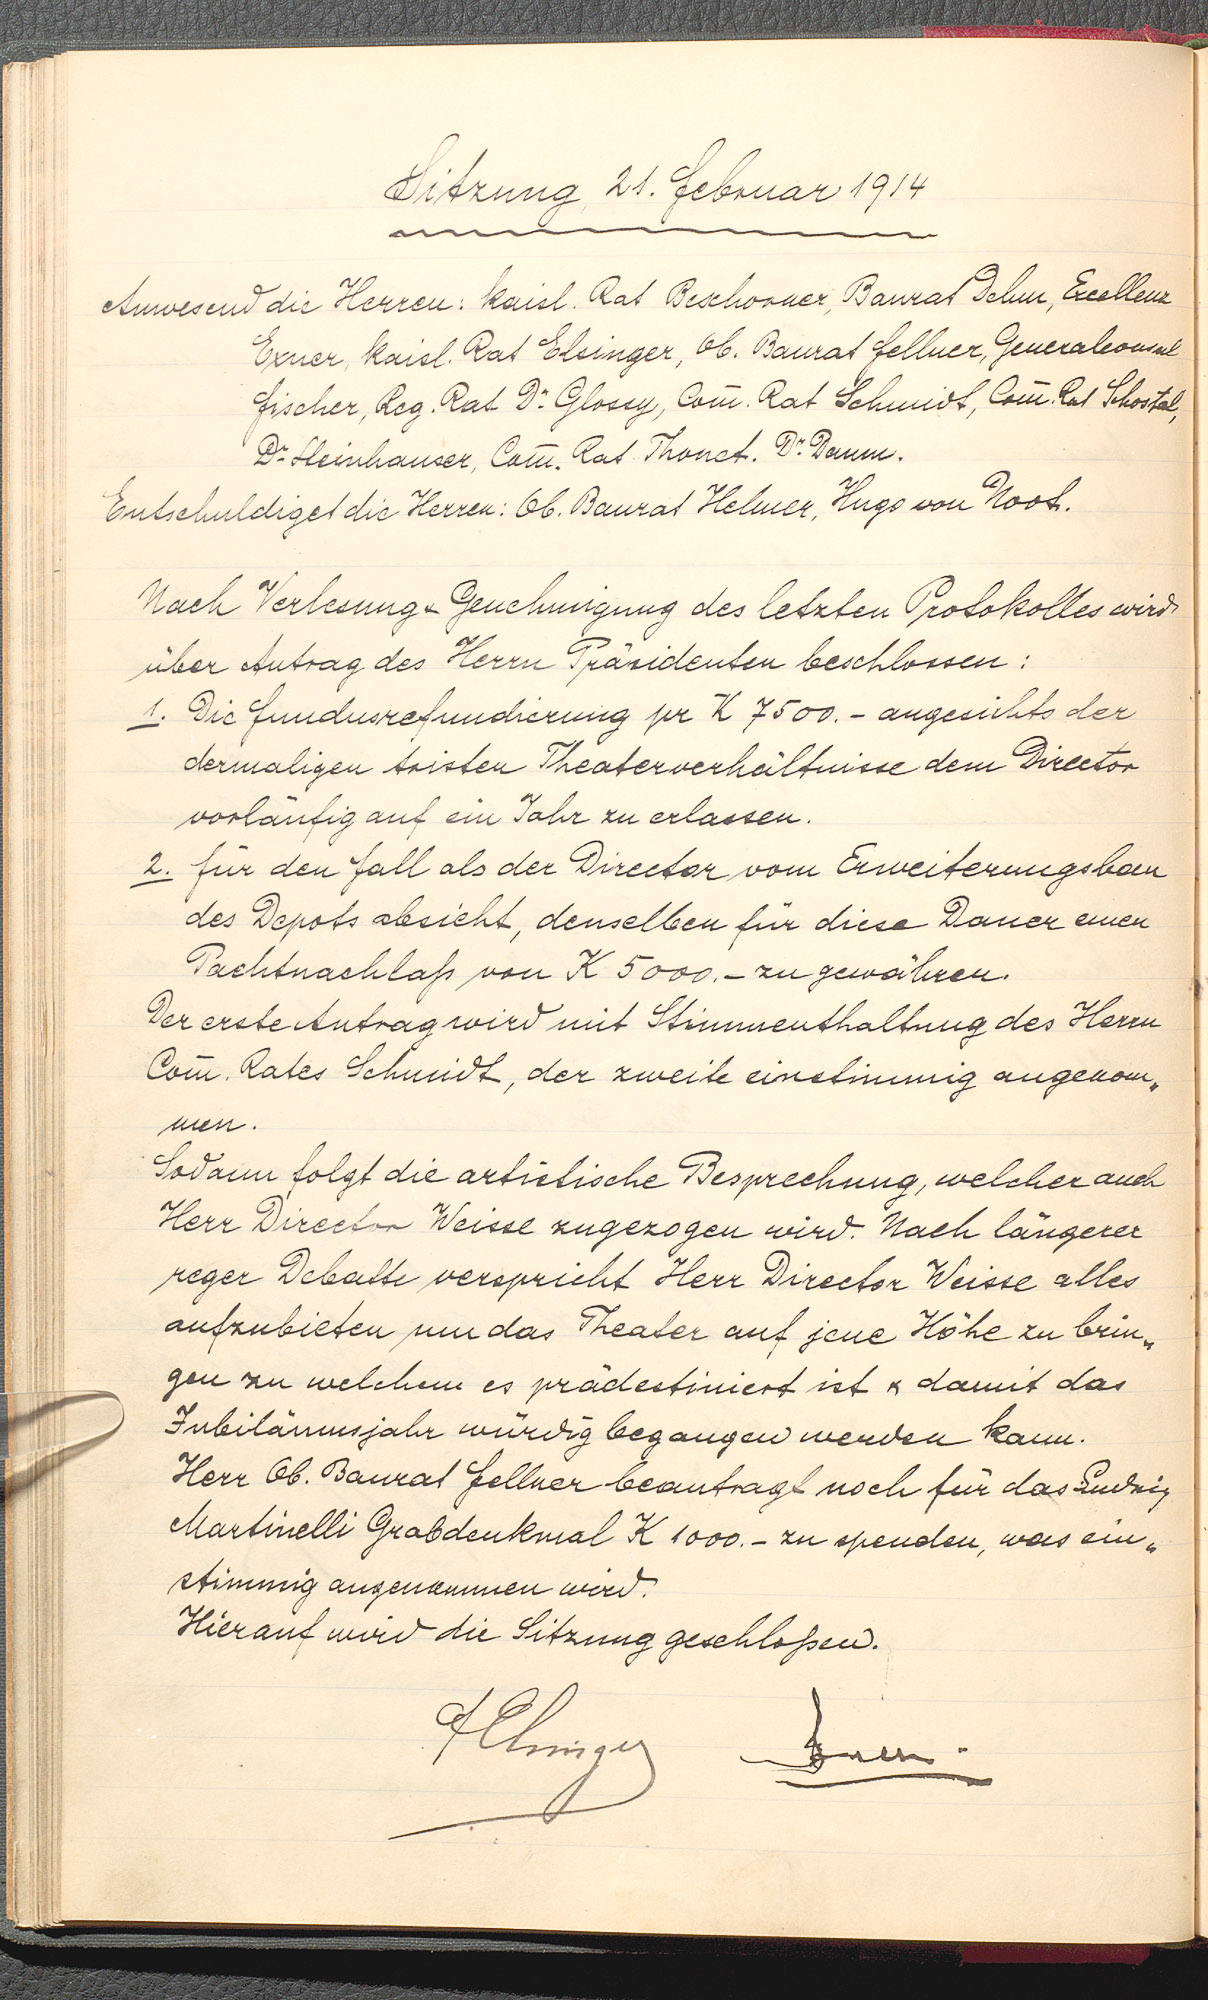 Sitzung, 21. Februar 1914
Anwesend die Herren: kaisl. Rat Beschorner, Baurat Dehm, Excellenz
Exner, kaisl. Rat Elsinger, Ob. Baurat Fellner, Generalconsul
Fischer, Reg. Rat Dr. Glossy, Com̅. Rat Schmidt, Com̅. Rat Schostal,
Dr. Steinhauser, Com̅. Rat Thonet. Dr. Daum.
Entschuldiget die Herren: Ob. Baurat Helmer, Hugo von Noot.
Nach Verlesung & Genehmigung des letzten Protokolles wird
über Antrag des Herrn Präsidenten beschlossen:
1. Die Fundusrefundierung pr K 7500.- angesichts der
dermaligen tristen Theaterverhältnisse dem Director
vorläufig auf ein Jahr zu erlassen.
2. Für den Fall als der Director vom Erweiterungsbau
des Depots absieht, denselben für diese Dauer einen
Pachtnachlaß von K 5000.- zu gewähren.
Der erste Antrag wird mit Stimmenthaltung des Herrn
Com̅. Rates Schmidt, der zweite einstimmig angenom„
men.
Sodann folgt die artistische Besprechung, welcher auch
Herr Director Weisse zugezogen wird. Nach längerer
reger Debatte verspricht Herr Director Weisse alles
aufzubieten um das Theater auf jene Höhe zu brin„
gen zu welchem es prädestiniert ist & damit das
Jubiläumsjahr würdig begangen werden kann.
Herr Ob. Baurat Fellner beantragt noch für das Ludwig
Martinelli Grabdenkmal K 1000.- zu spenden, was ein„
stimmig angenommen wird.
Hierauf wird die Sitzung geschloßen.
Elsinger